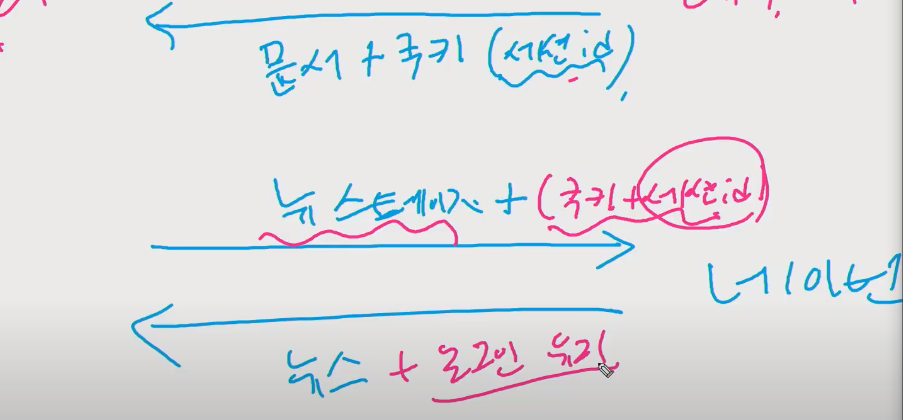 문서 + 쿠키 (세션id)
뉴스페이지 + (쿠키+세션id)
네이버
뉴스 + 로그인 유지